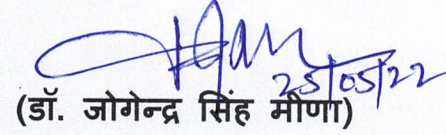 25/05/22
(डॉ. जोगेन्द्र सिंह मीणा)